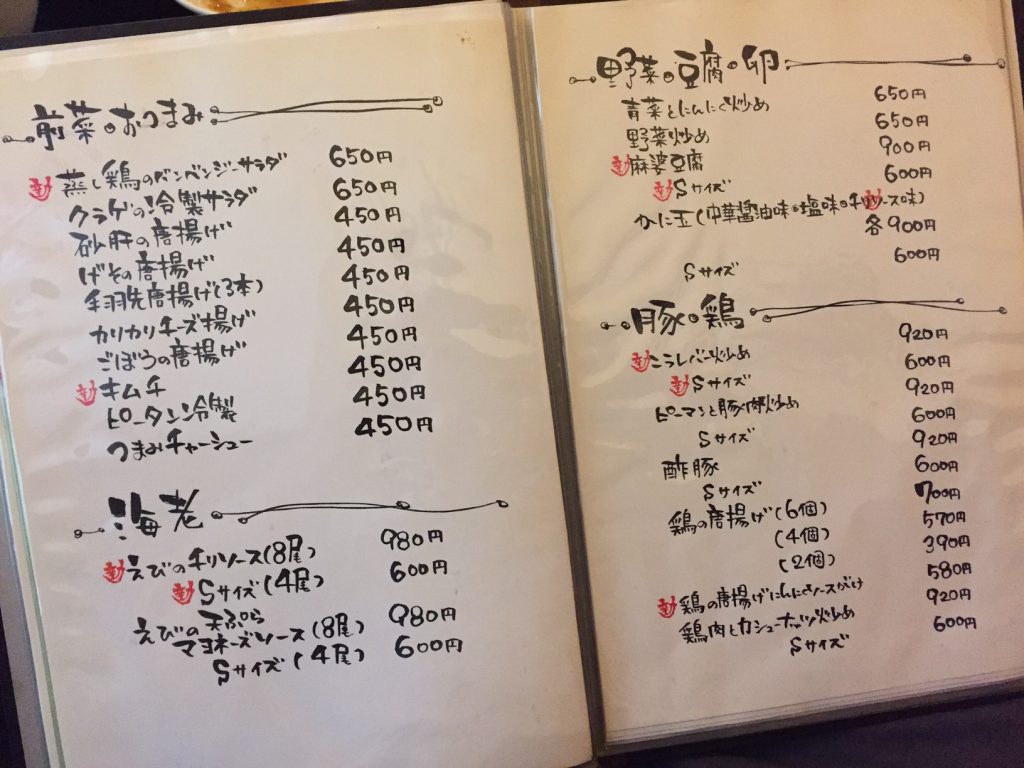 前菜・おつまみ
辛 蒸し鶏のバンバンジーサラダ 650円
クラゲの冷製サラダ 650円
砂肝の唐揚げ 450円
げその唐揚げ 450円
手羽先唐揚げ(3本) 450円
カリカリチーズ揚げ 450円
ごぼうの唐揚げ 450円
辛 キムチ 450円
ピータン冷製 450円
つまみチャーシュー 450円
海老
辛 えびのチリソース(8尾) 980円
辛 Sサイズ(4尾) 600円
えびの天ぷら
マヨネーズソース(8尾) 980円
Sサイズ(4尾) 600円
野菜・豆腐・卵
青菜とにんにく炒め 650円
野菜炒め 650円
辛 麻婆豆腐 900円
辛 Sサイズ 600円
かに玉(中華醤油味・塩味・チリソース味)
各900円
Sサイズ 600円
豚・鶏
辛 ニラレバー炒め 920円
辛 Sサイズ 600円
ピーマンと豚肉炒め 920円
Sサイズ 600円
酢豚 920円
Sサイズ 600円
鶏の唐揚げ(6個) 700円
(4個) 570円
(2個) 390円
辛 鶏の唐揚げにんにくソースがけ 580円
鶏肉とカシューナッツ炒め 920円
Sサイズ 600円